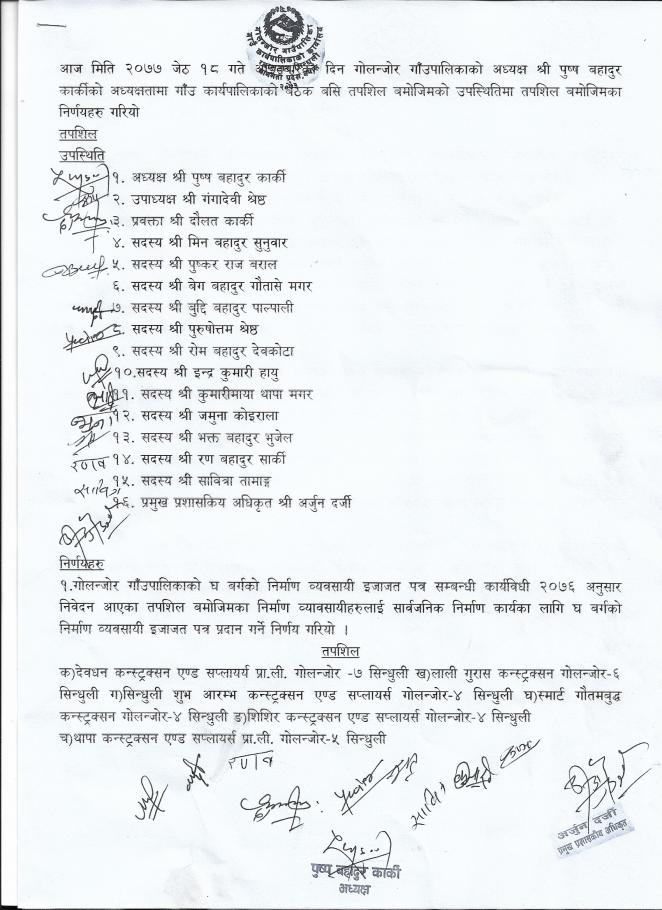 गोलन्जोर गाउँपालिका
गाउँ कार्यपालिकाको कार्यालय
आज मिति २०७७ जेठ १८ गते दिन गोलन्जोर गाँउपालिकाको अध्यक्ष श्री पुष्प बहादुर
कार्कीको अध्यक्षतामा गाँउ कार्यपालिकाको बैठक बसि तपशिल बमोजिमको उपस्थितिमा तपशिल बमोजिमका
निर्णयहरु गरियो
तपशिल
उपस्थिति
१. अध्यक्ष श्री पुष्प बहादुर कार्की
२. उपाध्यक्ष श्री गंगादेवी श्रेष्ठ
३. प्रवक्ता श्री दौलत कार्की
४. सदस्य श्री मिन बहादुर सुनुवार
५. सदस्य श्री पुष्कर राज बराल
६. सदस्य श्री बेग बहादुर गौतासे मगर
७. सदस्य श्री बुद्दि बहादुर पाल्पाली
८. सदस्य श्री पुरुषोत्तम श्रेष्ठ
९. सदस्य श्री रोम बहादुर देवकोटा
१०.सदस्य श्री इन्द्र कुमारी हायु
११. सदस्य श्री कुमारीमाया थापा मगर
१२. सदस्य श्री जमुना कोइराला
१३. सदस्य श्री भक्त बहादुर भुजेल
रणव १४. सदस्य श्री रण बहादुर सार्की
सावित्रा १५. सदस्य श्री सावित्रा तामाङ्ग
१६. प्रमुख प्रशासकिय अधिकृत श्री अर्जुन दर्जी
निर्णयहरु
१.गोलन्जोर गाँउपालिकाको घ बर्गको निर्माण व्यवसायी इजाजत पत्र सम्बन्धी कार्यविधी २०७६ अनुसार
निवेदन आएका तपशिल बमोजिमका निर्माण व्यावसायीहरुलाई सार्वजनिक निर्माण कार्यका लागि घ बर्गको
निर्माण व्यवसायी इजाजत पत्र प्रदान गर्ने निर्णय गरियो ।
तपशिल
क)देवधन कन्स्ट्रक्सन एण्ड सप्लायर्य प्रा.ली. गोलन्जोर -७ सिन्धुली ख)लाली गुरास कन्स्ट्रक्सन गोलन्जोर-६
सिन्धुली ग)सिन्धुली शुभ आरम्भ कन्स्ट्रक्सन एण्ड सप्लायर्स गोलन्जोर-४ सिन्धुली घ)स्मार्ट गौतमबुद्ध
कन्स्ट्रक्सन गोलन्जोर-४ सिन्धुली ङ)शिशिर कन्स्ट्रक्सन एण्ड सप्लायर्स गोलन्जोर-४ सिन्धुली
च)थापा कन्स्ट्रक्सन एण्ड सप्लायर्स प्रा.ली. गोलन्जोर-५ सिन्धुली
रणव
अर्जुन दर्जी
प्रमुख प्रशासकीय अधिकृत
पुष्प बहादुर कार्की
अध्यक्ष